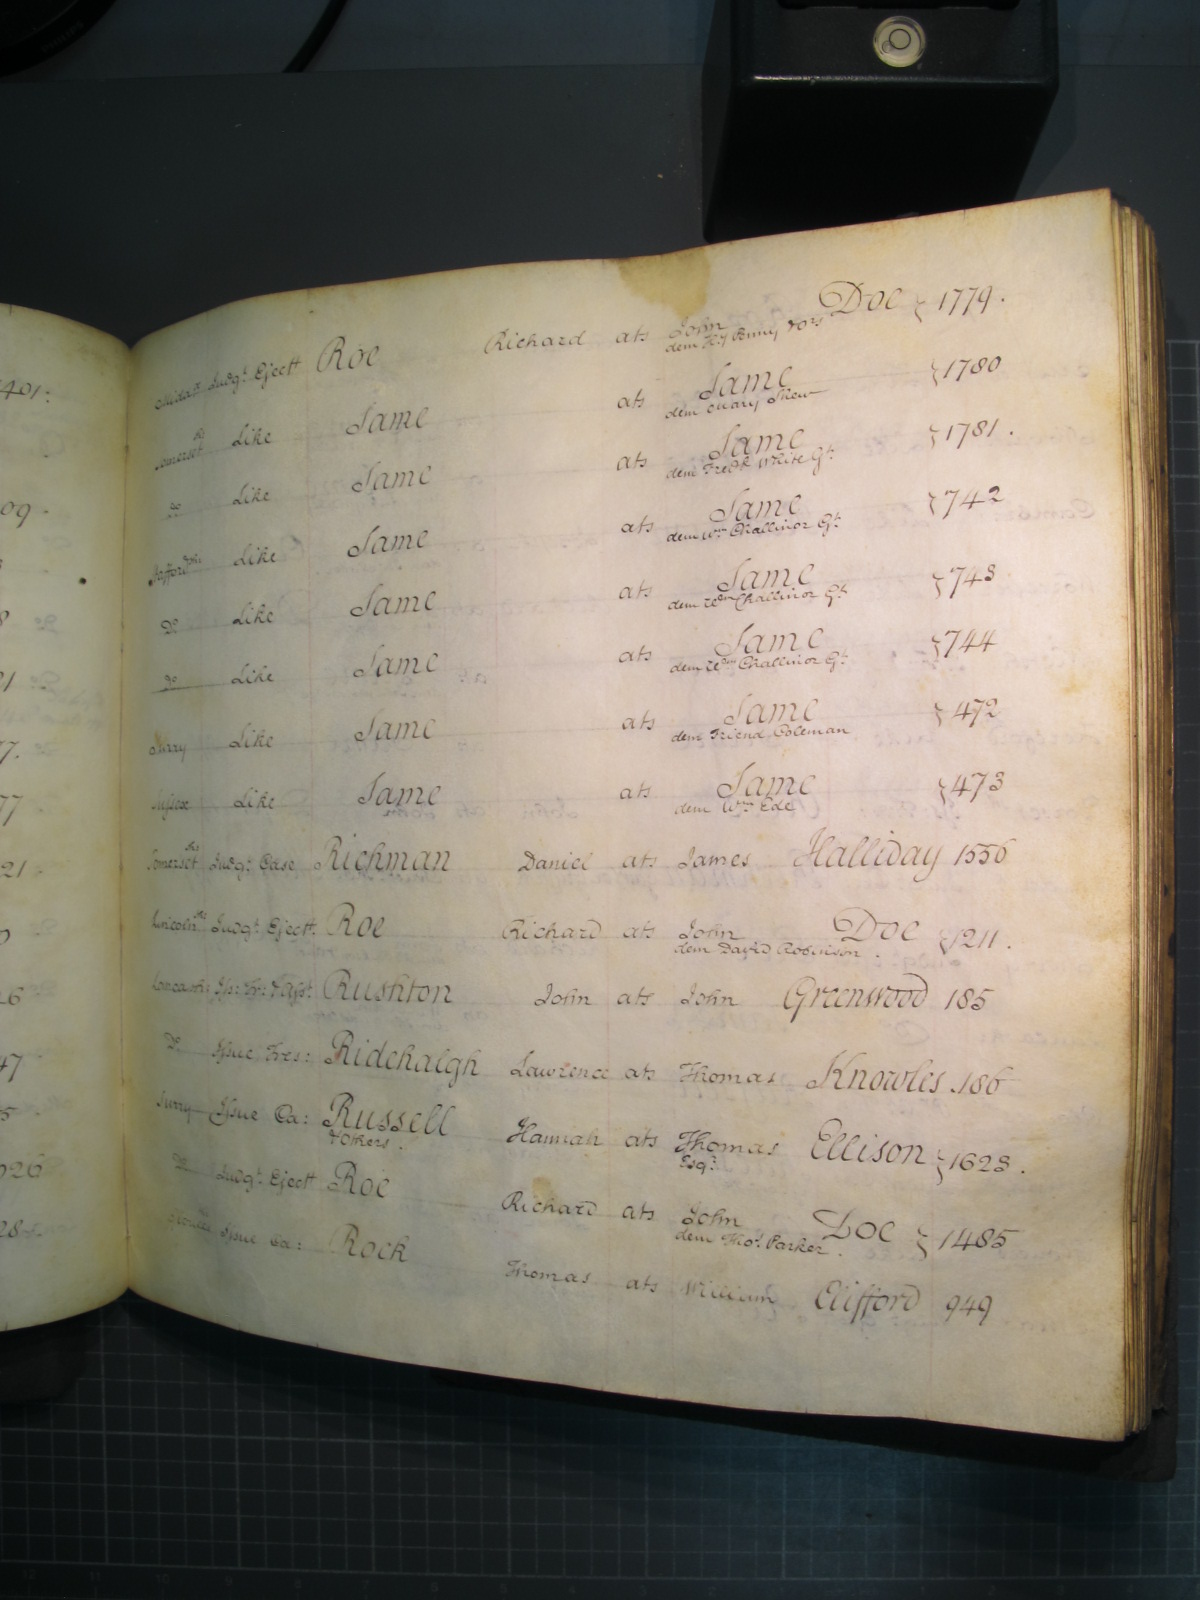 401.
09.
8
21
77.
77
21
26
47
5
026
28.
Judgt. Ejectt Roe Richard ats John Doe } 1779.
dem Hy Bunny & ors
Somersetshe Like Same ats Same } 1780
dem Mary Shew
Do Like Same ats Same } 1781.
dem Fredk White Gt.
Staffordshe Like Same ats Same } 742
dem Wm Challinor Gt.
Do Like Same ats Same } 743
dem Wm Challinor Gt.
Do Like Same ats Same } 744
dem Wm Challinor Gt.
Surry Like Same ats Same } 472
dem Friend Coleman
Sussex Like Same ats Same } 473
dem Wm Ede
Somersetshe Judgt. Case Richman Daniel ats James Halliday 1556
Lincolnshe Judgt. Ejectt. Roe Richard ats John Doe } 1211.
dem David Robinson.
Rushton John ats John Greenwood 185
Do Issue Tres: Ridehalgh Lawrence ats Thomas Knowles 186
Surry Issue Ca: Russell Hannah ats Thomas Ellison } 1623.
& Others. Esqr.
Do Judgt. Ejectt Roe Richard ats John Doe } 1485
dem Thos. Parker.
Issue Ca: Rock Thomas ats William Clifford 949